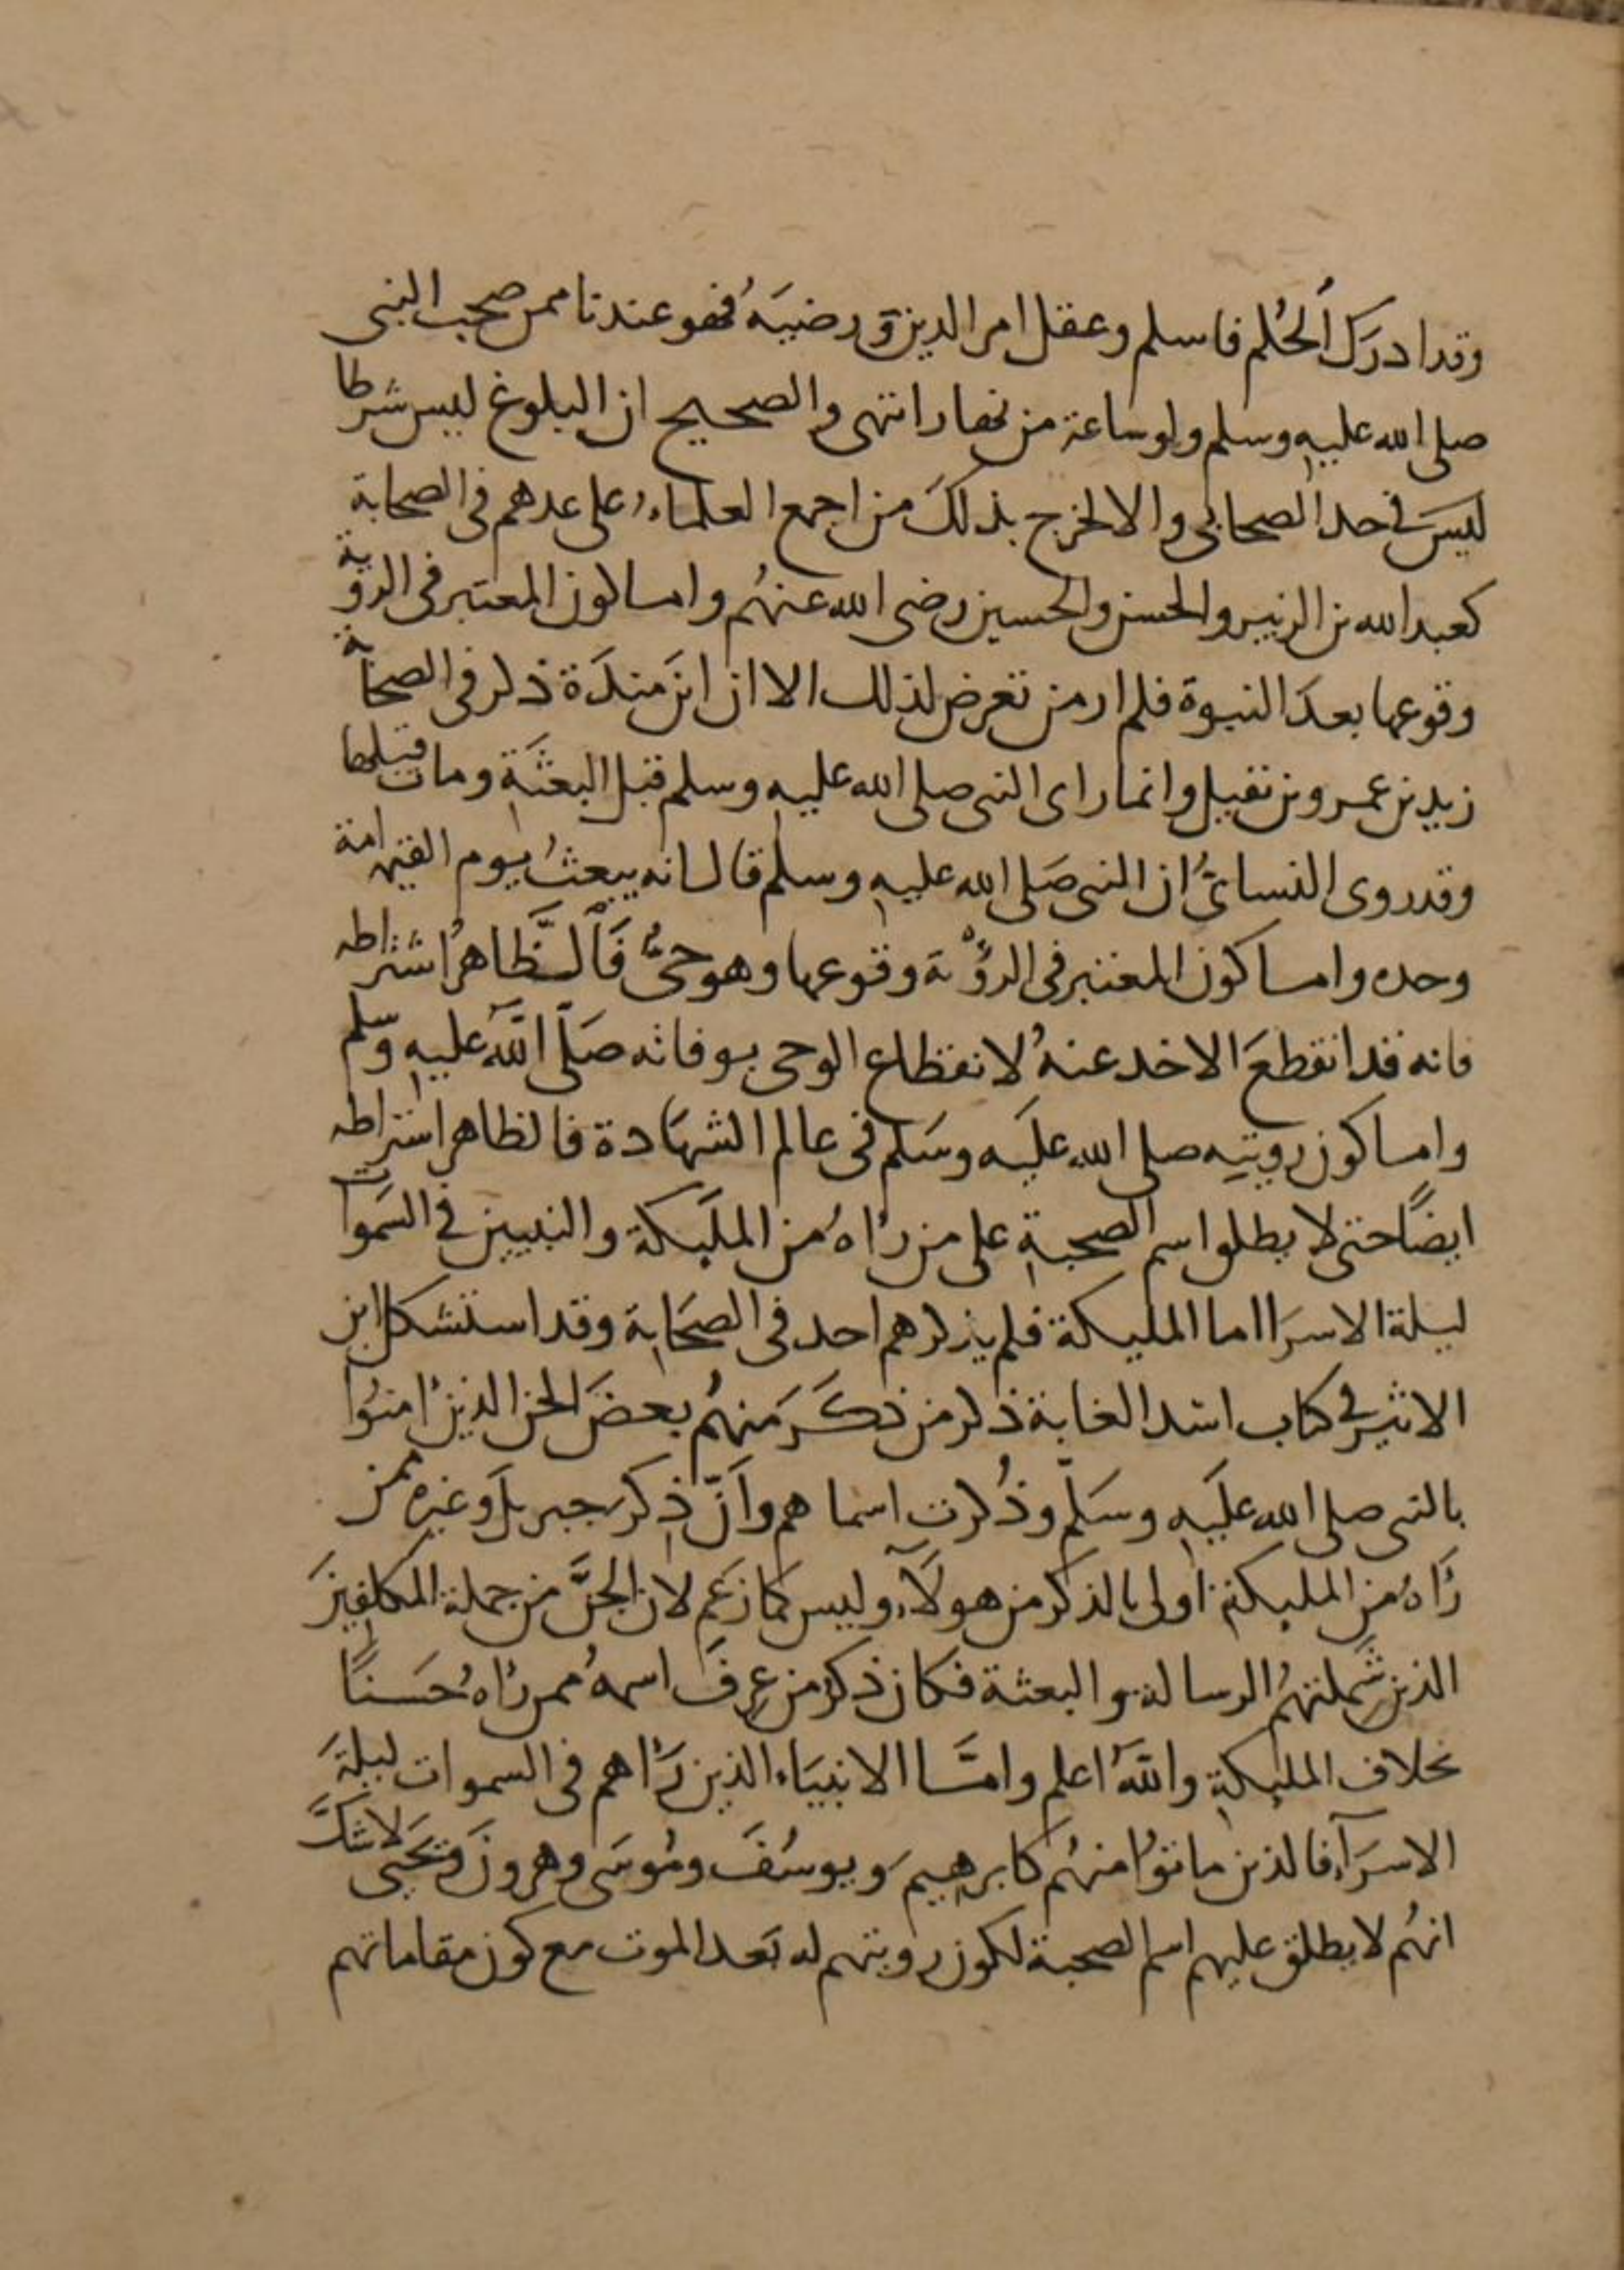 وقد ادرَكَ الحُلم فاسلم وعقل امر الدين وَرضيَهُ فهو عندنا ممن صحب النبى
صلى الله عليه وسلم ولو ساعة من نهار انتهى والصحيح ان البلوغ ليس شرطا
ليسَ فى حد الصحابى والا لخرج بذلكَ من اجمع العلماء على عدهم فى الصحابة
كعبد الله بن الزبير والحسن والحسين رضى الله عنهُم واما كون المعتبر فى الروية
وقوعها بعدَ النبوة فلم ار من تعرض لذلك الا ان ابنَ مندَة ذكر فى الصحابة
زيد بن عمرو بن نفيل وانما راى النبى صلى الله عليه وسلم قبل البعثَة ومات قبلها
وقد روى النسائىُّ ان النبى صَلى الله عليه وسلم قال انه يبعثُ يوم القيمة امة
وحده واما كون المعتبر فى الرؤْية وقوعها وهو حىٌّ فَالظَّاهرُ اشتراطه
فانه قد انقطعَ الاخد عنهُ لانقطاع الوحى بوفاته صَلّى اللهُ عليه وسلم
واما كون رويتِه صلى الله عليَه وسَلم فى عالم الشهَادة فالظاهر اشتراطه
ايضًا حتى لا يطلق اسم الصحبة على من رُاهُ من المليكة والنبيين فى السَموات
ليلة الاسرَا اما المليكة فلم يذكرهم احد فى الصحَابة وقد استشكل ابن
الاثير فى كتاب اسد الغابة ذكر من ذكَرَ منهُم بعضَ الجن الذين امنُوا
بالنبى صلى الله عليَه وسَلّم وذُكرت اسماهم وانّ ذِكرَ جبريلَ وغيره ممن
رَاهُ من المليكة اولى بالذكر من هولآء وليس كما زعَم لان الجنَّ من جملة المكلفينَ
الذين شَملتهُم الرسالة والبعثة فكان ذكر من عرفَ اسمهُ ممن رُاهُ حَسَنًا
بخلاف المليكة واللهُ اعلم وامَّا الانبيَاء الذين رَاهم فى السموات ليلةَ
الاسرَآء فالذين ماتوُا منهُم كابرهيمَ ويوسُفَ ومُوسَى وهرونَ ويَحيَى لاشكَّ
انهُم لا يطلق عليهم اسم الصحبة لكون رويتهم له بَعد الموت مع كون مقاماتهم